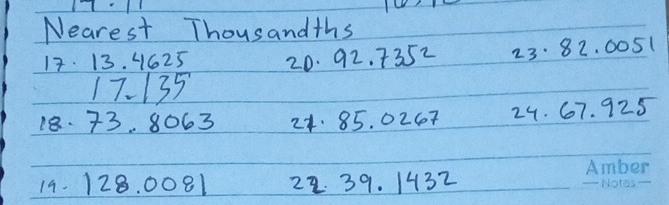 Nearest Thousandths
17. 13.4625 20. 92.7352 23. 82.0051
17.135
18. 73.8063 21. 85.0267 24. 67.925
19. 128.0081 22. 39.1432
Amber
Notes